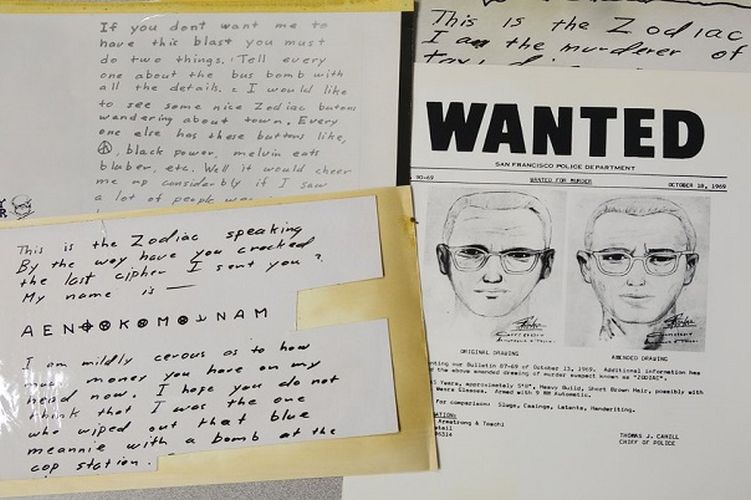 If you dont want me to
have this blast you must
do two things. 1 Tell every
one about the bus bomb with
all the details. 2 I would like
to see some nice Zodiac butons
wandering about town. Every
one else has these buttons like,
☮, black power, melvin eats
bluber, etc. Well it would cheer
me up considerbly if I saw
a lot of people
This is the Zodiac speaking
By the way have you cracked
the last cipher I sent you?
My name is —
A E N ⊕ K M N A M
I am mildly cerous as to how
much money you have on my
head now. I hope you do not
think that I was the one
who wiped out that blue
meannie with a bomb at the
cop station.
This is the Zodiac
I am the murderer of
WANTED
SAN FRANCISCO POLICE DEPARTMENT
90-69 WANTED FOR MURDER OCTOBER 18, 1969
ORIGINAL DRAWING AMENDED DRAWING
our Bulletin 87-69 of October 13, 1969. Additional information has
the above amended drawing of murder suspect known as "ZODIAC".
Years, approximately 5'8", Heavy Build, Short Brown Hair, possibly with
Glasses. Armed with 9 MM Automatic.
for comparison: Slugs, Casings, Latents, Handwriting.
Armstrong & Toschi
THOMAS J. CAHILL
CHIEF OF POLICE